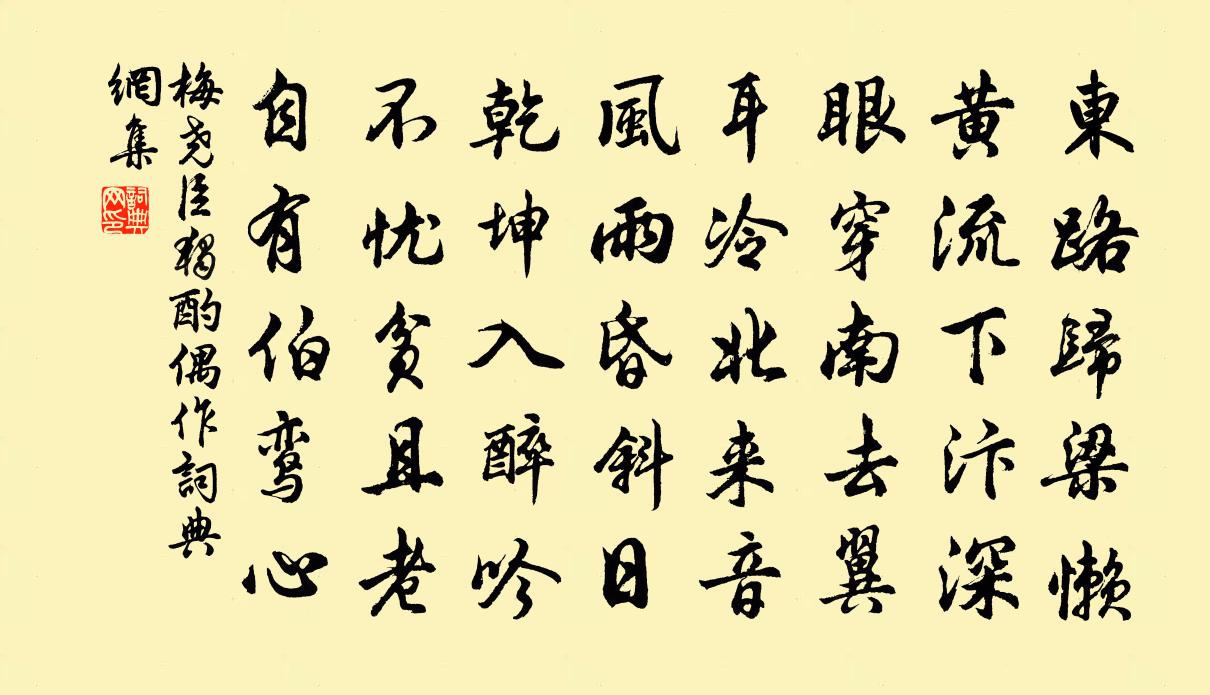 東路歸梁懶
黃流下汴深
眼穿南去翼
耳冷北来音
風雨昏斜日
乾坤入醉吟
不忧貧且老
自有伯鸾心
梅尧臣獨酌偶作詞典
網集
詞典
网印